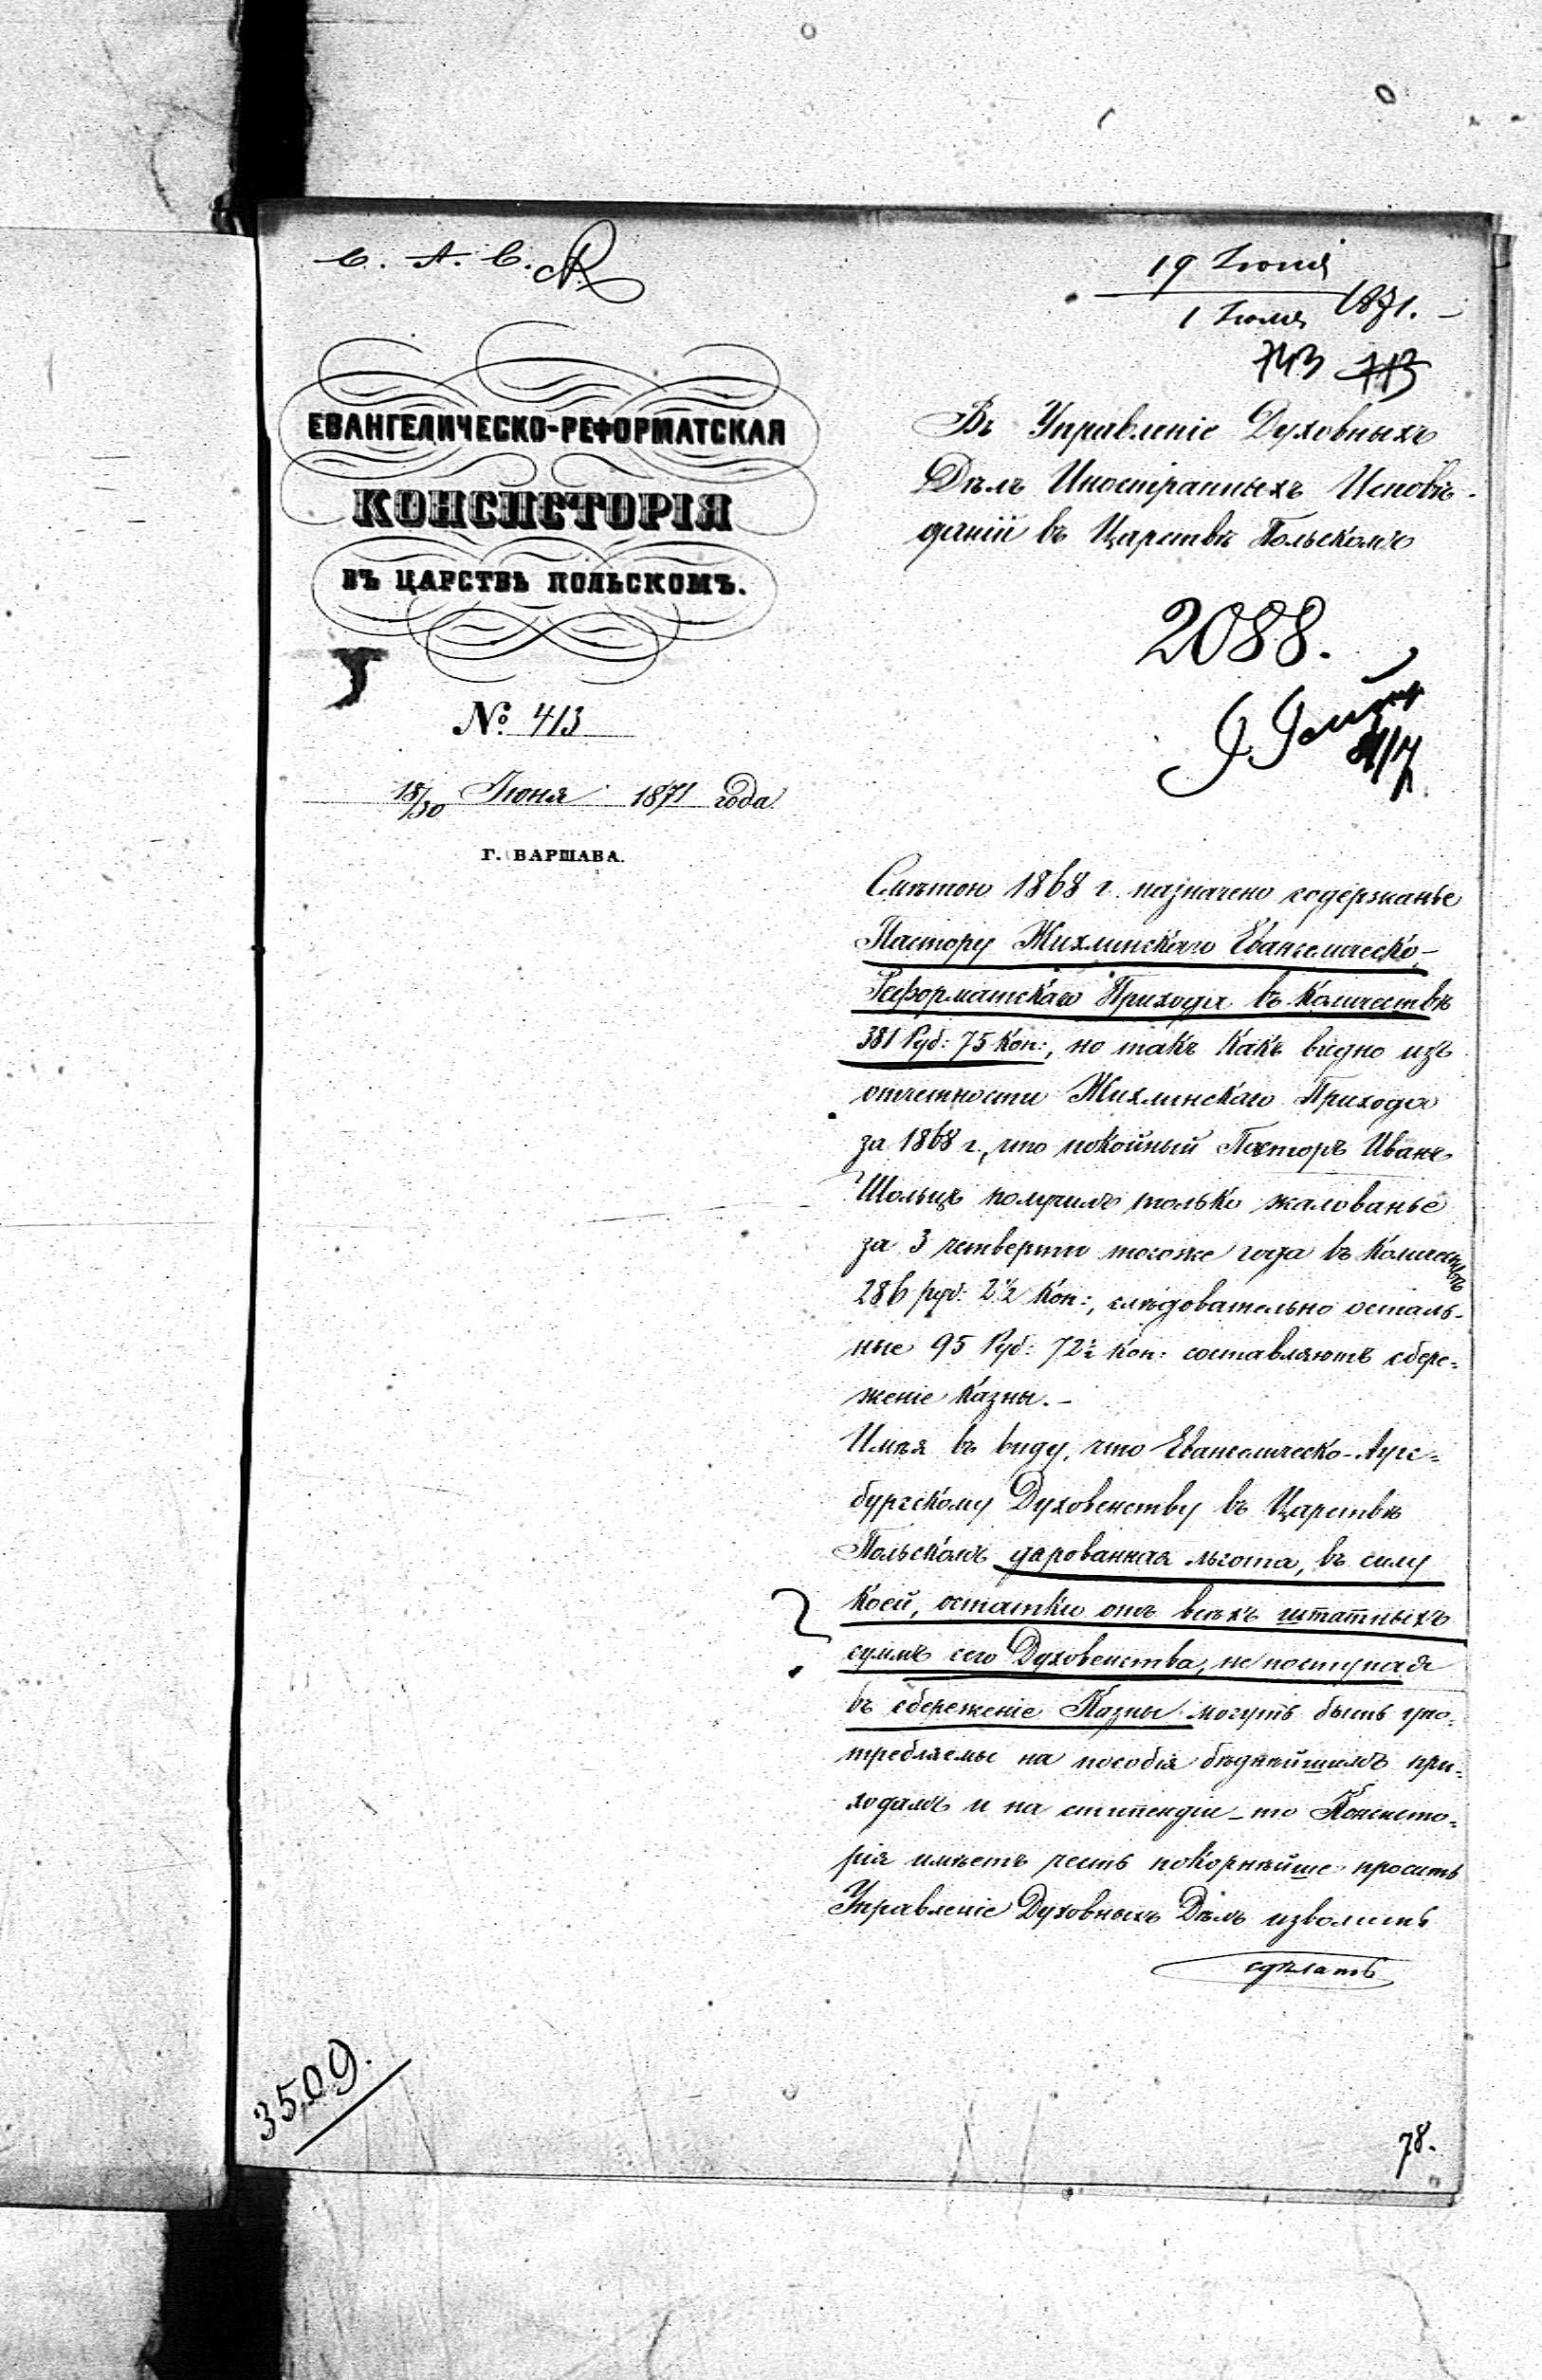 С. А. С.
19 Іюня
1 Іюля 1871.
743 713
ЕВАНГЕЛИЧЕСКО-РЕФОРМАТСКАЯ
КОНСИСТОРІЯ
ВЪ ЦАРСТВѢ ПОЛЬСКОМЪ.
№ 413
18/30 Іюня 1871 года
Г. ВАРШАВА.
Въ Управленіе Духовныхъ
Дѣлъ Иностранныхъ Исповѣ-
даній въ Царствѣ Польскомъ
2088.
Смѣтою 1868 г. назначено содержанье
Пастору Жихлинскаго Евангелическо-
Реформатскаго Прихода въ количествѣ
381 Руб: 75 Коп:, но такъ какъ видно изъ
отчетности Жихлинскаго Прихода
за 1868 г., что покойный Пасторъ Иванъ
Шольцъ получилъ только жалованье
за 3 четверти тогоже года въ количествѣ
286 руб: 2½ Коп:, слѣдовательно осталь-
ные 95 Руб: 72½ Коп: составляютъ сбере=
женіе Казны. –
Имѣя въ виду, что Евангелическо-Аугс=
бургскому Духовенству въ Царствѣ
Польскомъ дарованная льгота, въ силу
коей, остатки отъ всѣхъ штатныхъ
суммъ сего Духовенства, не поступая
въ сбереженіе Казны могутъ быть упо=
требляемы на пособія бѣднѣйшимъ при=
ходамъ и на стипендіи – то Консисто=
рія имѣетъ честь покорнѣйше просить
Управленіе Духовныхъ Дѣлъ изволить
сдѣлать
3509.
78.